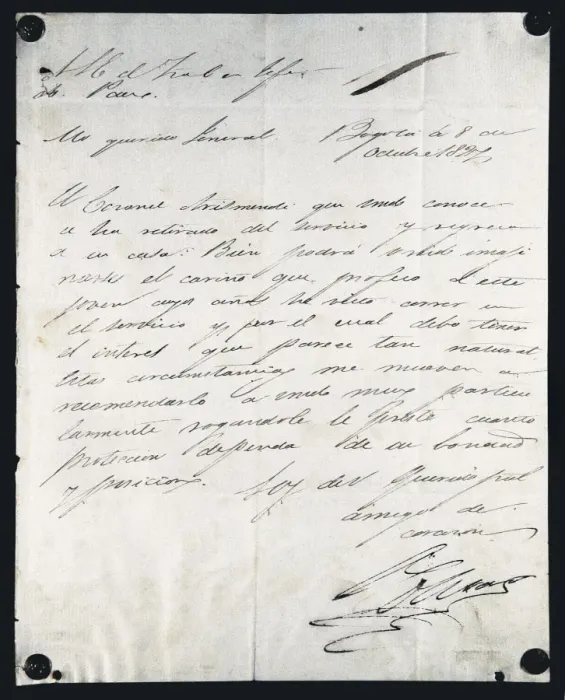 A S. E. el General Jefe
Paez.
Mi querido General. Bogotá a 8 de
Octubre 1827
El Coronel Arismendi que usted conoce
se ha retirado del servicio y regresa
a su casa: Bien podrá usted imagi
narse el cariño que profeso a este
joven cuyos años he visto correr en
el servicio y por el cual debo tener
el interes que parece tan natural.
Estas circunstancias me mueven a
recomendarlo a usted muy particu
larmente rogandole le preste cuanta
protección dependa de su bondad
y posicion. Soy de V. querido gral
amigo de
corazón